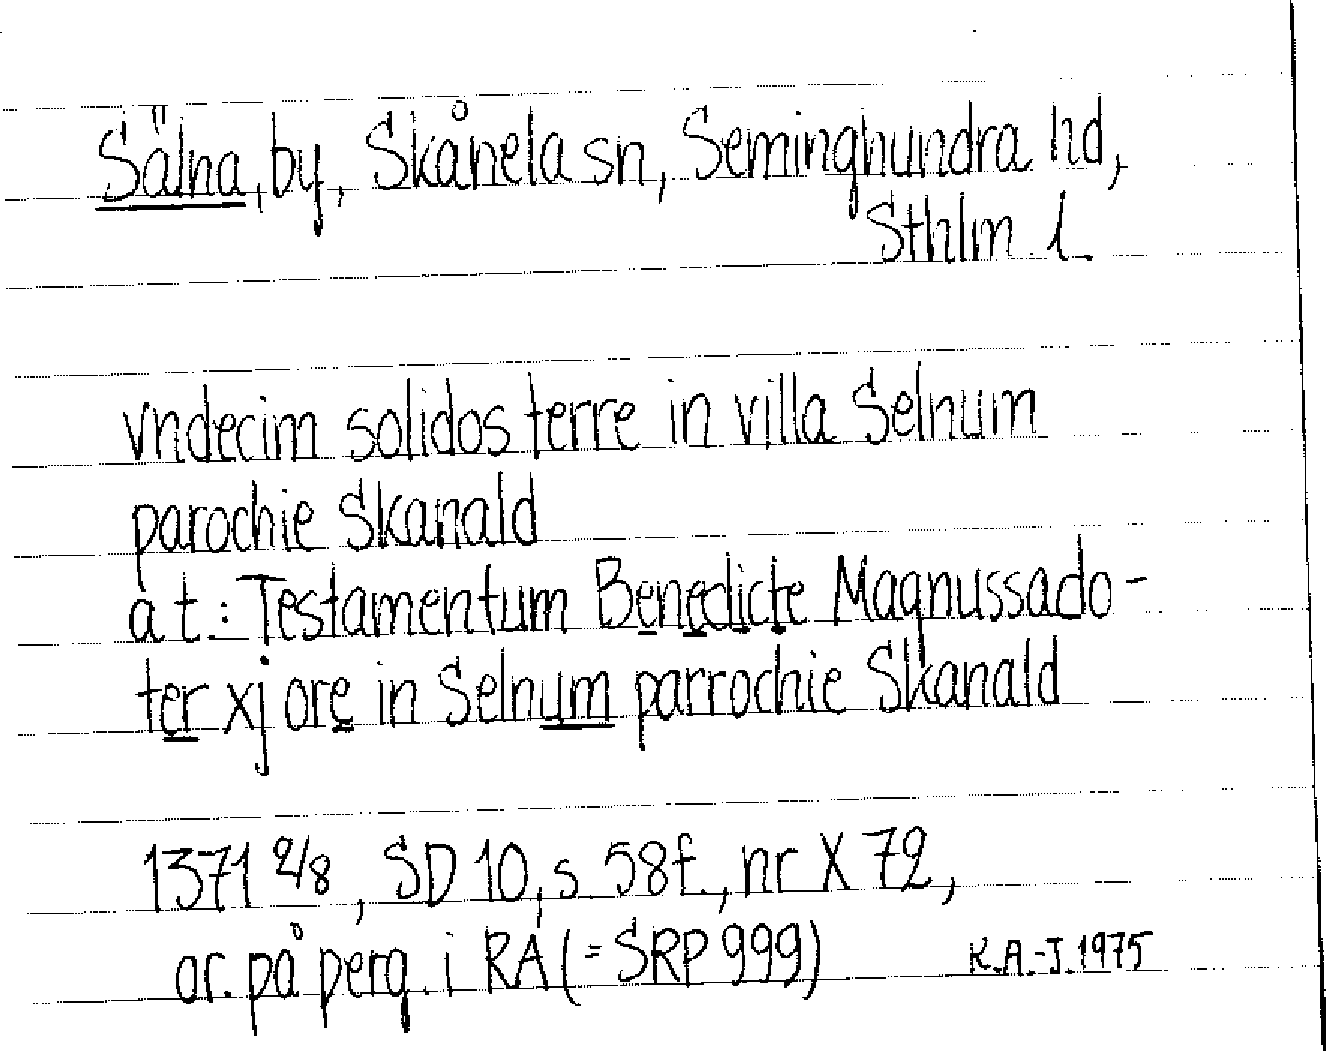 Sälna, by, Skånela sn, Seminghundra hd,
Sthlm l.
vndecim solidos terre in villa Selnum
parochie Skanald
a t.: Testamentum Benedicte Magnussado-
ter xj ore in Selnum parrochie Skanald
1371 2/8, SD 10, s. 58f., nr X 72,
or. på perg. i RA (= SRP 999)
K.A.-J. 1975